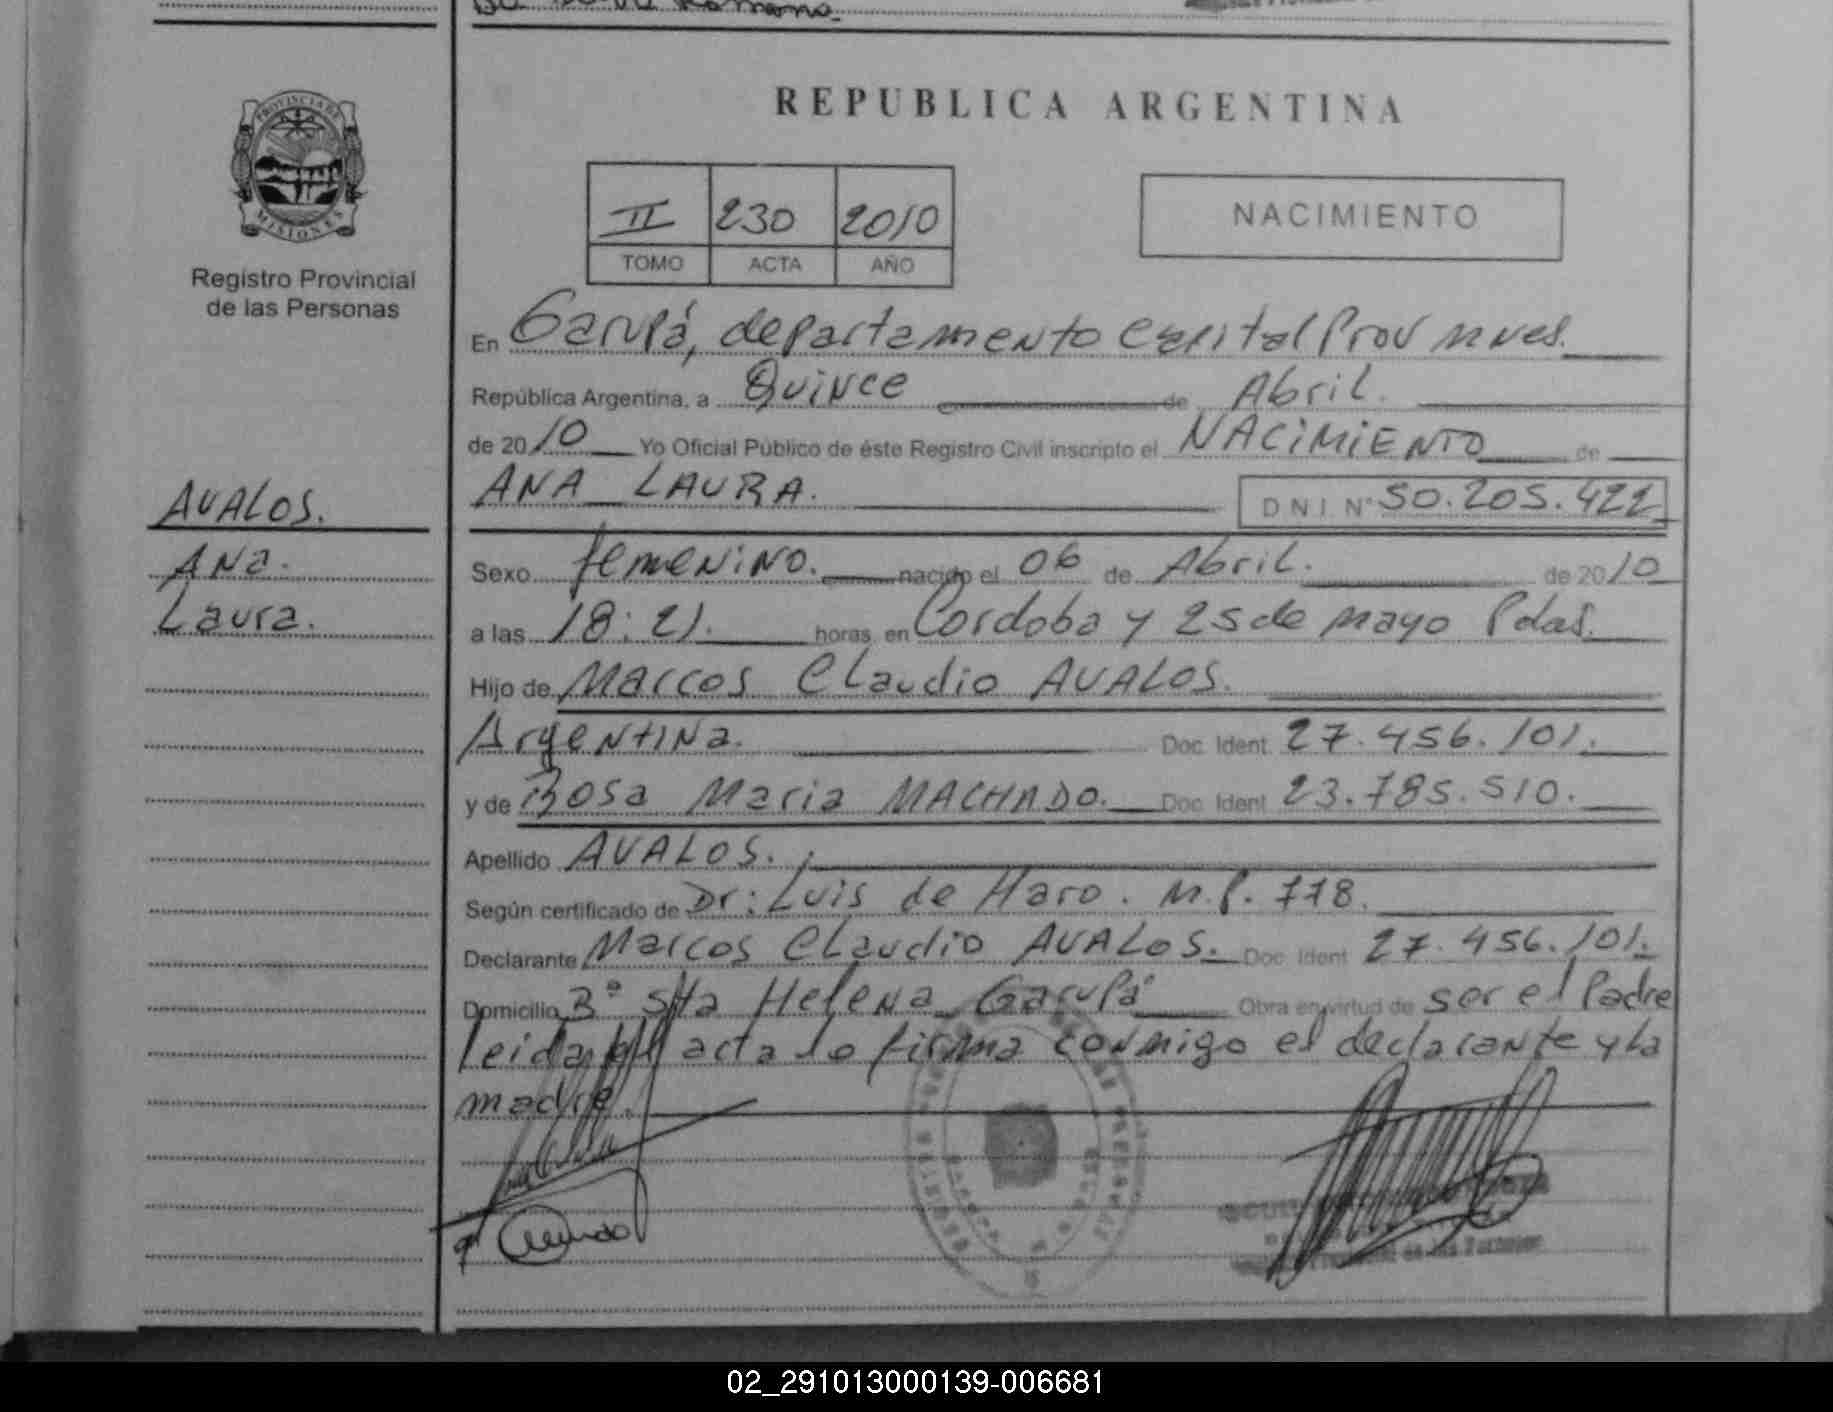 PROVINCIA DE
MISIONES
Registro Provincial
de las Personas
REPUBLICA ARGENTINA
II 230 2010
TOMO ACTA AÑO
NACIMIENTO
En Garupá, departamento Capital Prov
República Argentina, a Quince de Abril.
de 2010 Yo Oficial Público de éste Registro Civil inscripto el NACIMIENTO de
ANA LAURA. D N I N° 50.205.422
AVALOS.
Ana.
Laura.
Sexo femenino. nacido el 06 de Abril. de 2010
a las 18:21. horas en Cordoba y 25 de mayo Pdas.
Hijo de Marcos Claudio AVALOS.
Argentina. Doc Ident 27.456.101.
y de Rosa Maria MACHADO. Doc Ident 23.785.510.
Apellido AVALOS.
Según certificado de Dr: Luis de Haro. M.P. 778.
Declarante Marcos Claudio AVALOS. Doc Ident 27.456.101.
Domicilio B° Sta Helena Garupá Obra en virtud de ser el Padre
leida el acta lo firma conmigo el declarante y la
madre.
de las Personas
02_291013000139-006681